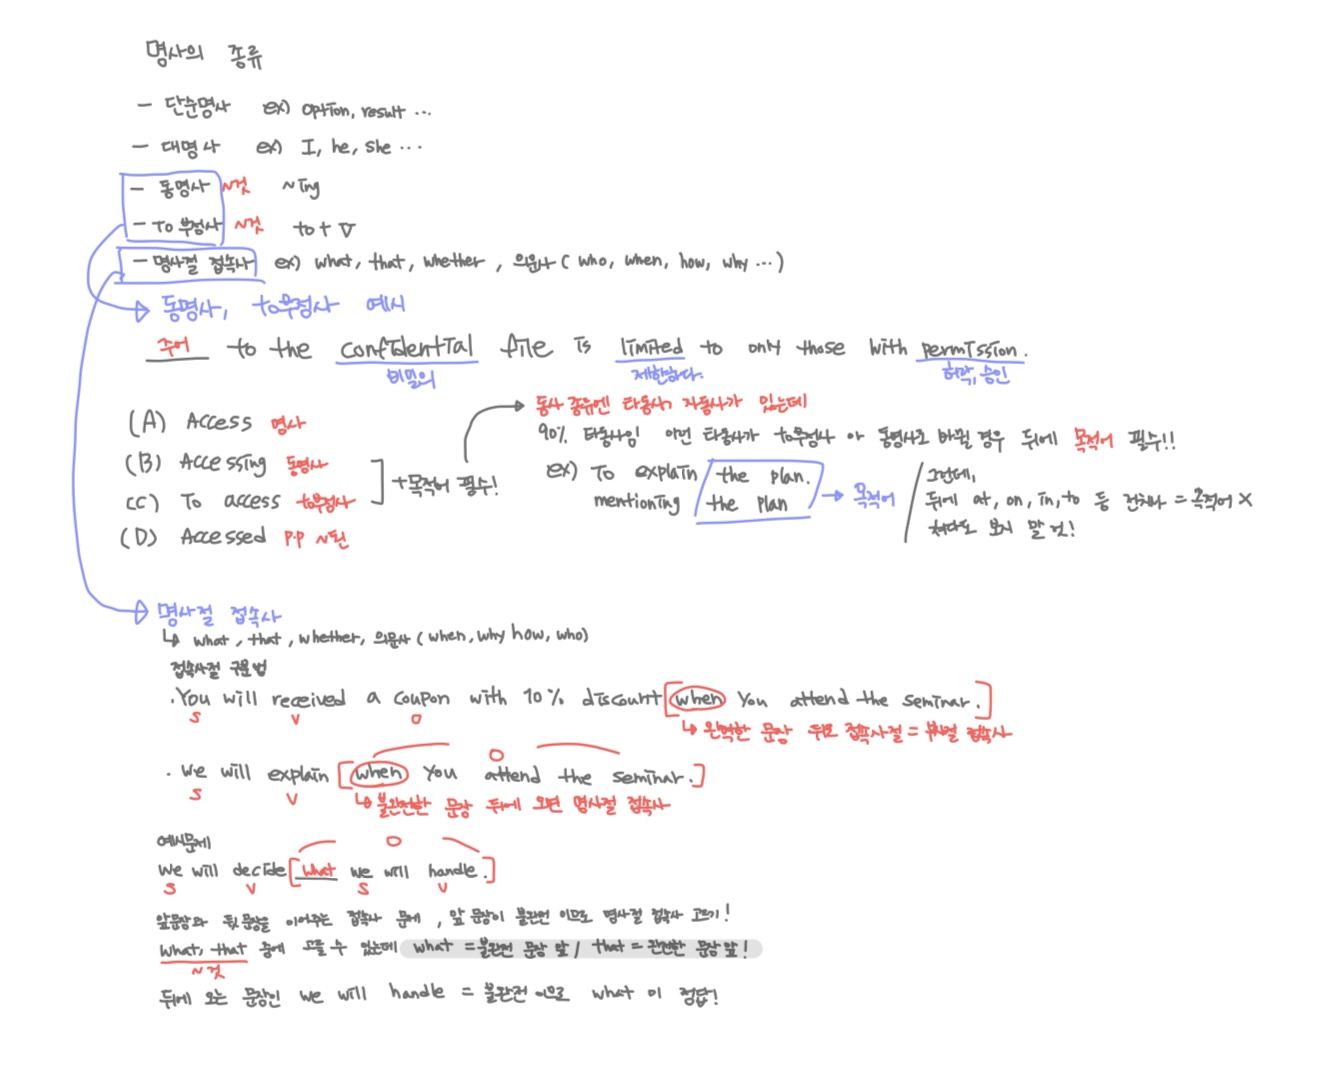 명사의 종류
- 단순명사 ex) option, result ...
- 대명사 ex) I, he, she ...
- 동명사 ~것 ~ing
- to 부정사 ~것 to + V
- 명사절 접속사 ex) what, that, whether, 의문사 ( who, when, how, why ... )
동명사, to부정사 예시
주어 to the confidential file is limited to only those with permission.
비밀의 제한하다. 허락, 승인
(A) Access 명사
(B) Accessing 동명사
(C) To access to부정사
(D) Accessed P.P ~된
+목적어 필수!
동사 종류엔 타동사, 자동사가 있는데
90% 타동사임 이런 타동사가 to부정사 아 동명사로 바뀔 경우 뒤에 목적어 필수!!
ex) To explain the plan.
mentioning the plan
목적어
그런데,
뒤에 at, on, in, to 등 전치사 = 목적어 X
쳐다도 보지 말 것!
명사절 접속사
↳ what, that, whether, 의문사 ( when, why how, who)
접속사절 구문법
. You will received a coupon with 10% discount [when you attend the seminar.]
S V O
↳ 완벽한 문장 뒤로 접속사절 = 부사절 접속사
O
. We will explain [when you attend the seminar.]
S V ↳ 불완전한 문장 뒤에 오면 명사절 접속사
예시문제
O
We will decide [what we will handle.]
S V S V
앞문장과 뒷문장을 이어주는 접속사 문제, 앞 문장이 불완전 이므로 명사절 접속사 고르기!
What, that 중에 고를 수 있는데 what = 불완전 문장 앞 / that = 완전한 문장 앞!
~것
뒤에 오는 문장인 we will handle = 불완전 이므로 what 이 정답!